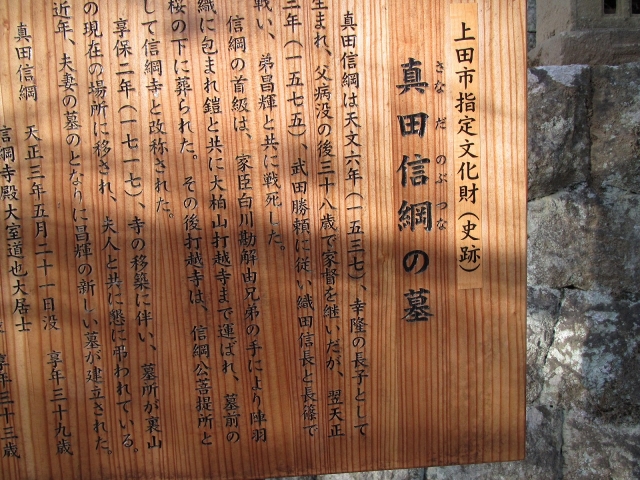 上田市指定文化財（史跡）
さなだのぶつな
真田信綱の墓
真田信綱は天文六年（一五三七）、幸隆の長子として
生まれ、父病没の後三十八歳で家督を継いだが、翌天正
三年（一五七五）、武田勝頼に従い織田信長と長篠で
戦い、弟昌輝と共に戦死した。
信綱の首級は、家臣白川勘解由兄弟の手により陣羽
織に包まれ鎧と共に大柏山打越寺まで運ばれ、墓前の
桜の下に葬られた。その後打越寺は、信綱公菩提所と
して信綱寺と改称された。
享保二年（一七一七）、寺の移築に伴い、墓所が裏山
の現在の場所に移され、夫人と共に懇に弔われている。
近年、夫妻の墓のとなりに昌輝の新しい墓が建立された。
真田信綱 天正三年五月二十一日没 享年三十九歳
信綱寺殿大室道也大居士
享年三十三歳